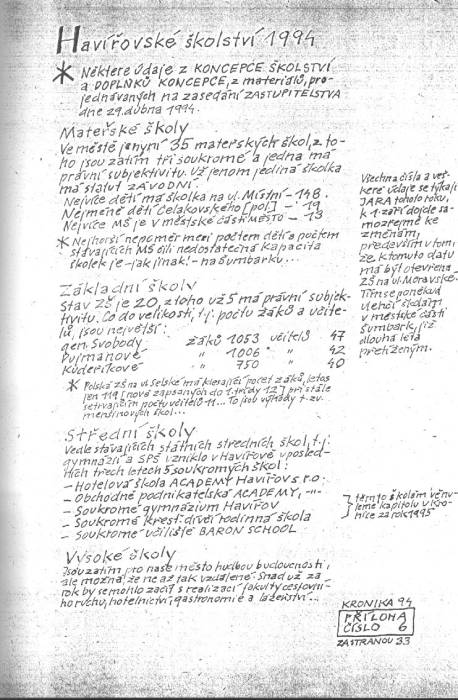 Havířovské školství 1994
* Některé údaje z KONCEPCE ŠKOLSTVÍ
a DOPLŇKŮ KONCEPCE, z materiálů, pro-
jednávaných na zasedání ZASTUPITELSTVA
dne 29. dubna 1994.
Mateřské školy
Ve městě je nyní 35 mateřských škol, z to-
ho jsou zatím tři soukromé a jedna má
právní subjektivitu. Už jenom jediná školka
má statut ZÁVODNÍ.
Nejvíce dětí má školka na ul. Místní - 148.
Nejméně dětí Čelakovského [pol] - 19
Nejvíce MŠ je v městské části MĚSTO - 13
* Nejhorší nepoměr mezi počtem dětí a počtem
stávajících MŠ čili nedostatečná kapacita
školek je - jak jinak! - na Šumbarku...
Základní školy
Stav ZŠ je 20, z toho už 5 má právní subjek-
tivitu. Co do velikosti, t.j. počtu žáků a učite-
lů, jsou největší:
gen. Svobody žáků 1053 učitelů 47
Pujmanové " 1006 " 42
Kudeříkové " 750 " 40
* Polská ZŠ na ul. Selské má klesající počet žáků, letos
jen 119 [nově zapsaných do 1. třídy 12] při stále
setrvajícím počtu učitelů 11... To jsou výhody t.zv.
menšinových škol...
Střední školy
Vedle stávajících státních středních škol, t.j.
gymnázií a SPŠ vzniklo v Havířově v posled-
ních třech letech 5 soukromých škol:
- Hotelová škola ACADEMY Havířov s.r.o.
- Obchodně podnikatelská ACADEMY, -"-
- Soukromé gymnázium Havířov
- Soukromá křest. dívčí rodinná škola
- Soukromé učiliště BARON SCHOOL
Vysoké školy
jsou zatím pro naše město hudbou budoucnosti,
ale možná, že ne až tak vzdálené. Snad už za
rok by se mohlo začít s realizací fakulty cestovní-
ho ruchu, hotelnictví, gastronomie a lázeňství...
Všechna čísla a veš-
keré údaje se týkají
JARA tohoto roku,
k 1. září dojde sa-
mozřejmě ke
změnám,
především v tom,
že k tomuto datu
má být otevřena
ZŠ na ul. Moravské.
Tím se poněkud
ulehčí školám
v městské části
Šumbark, již
dlouhá léta
přetíženým.
} těmto školám věnu-
jeme kapitolu v Kro-
nice za rok 1995
KRONIKA 94
PŘÍLOHA
ČÍSLO 6
ZA STRANOU 33